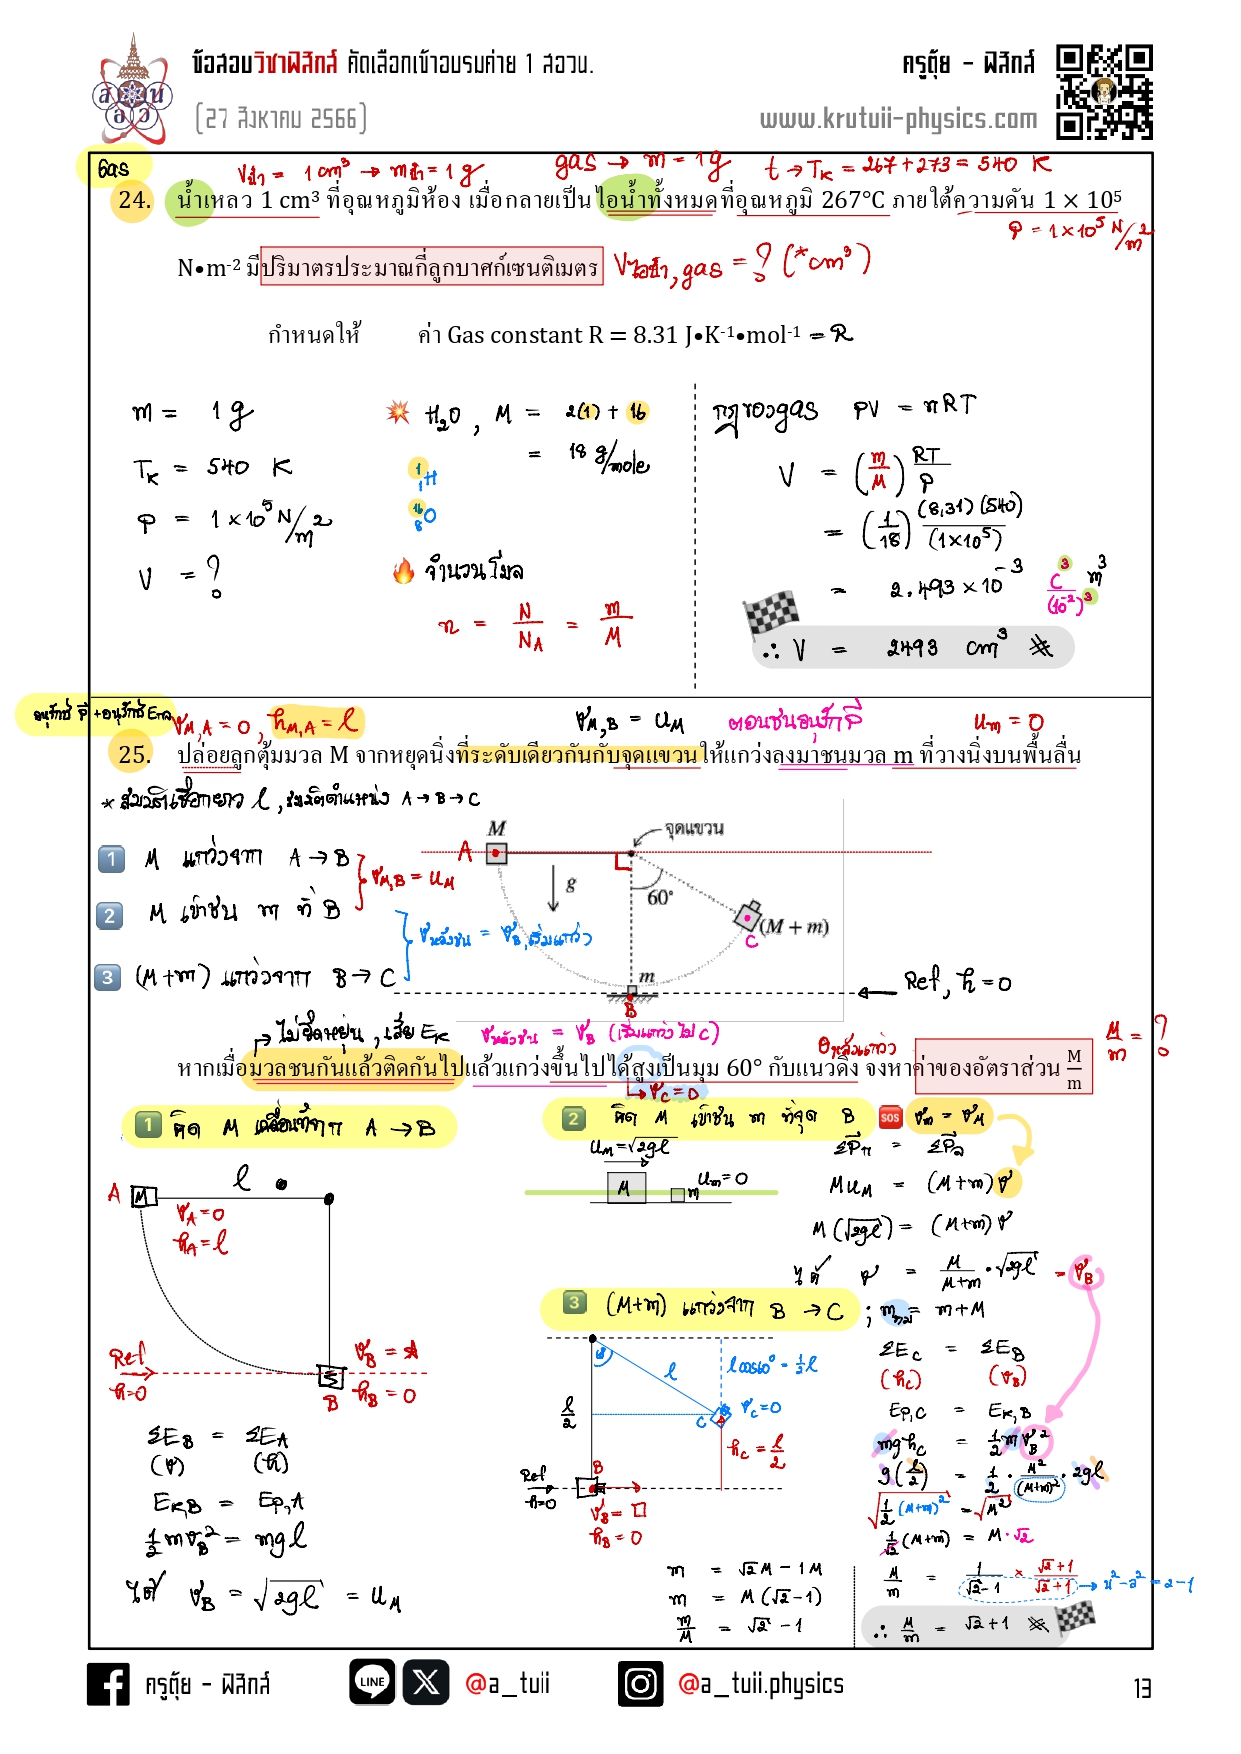 ข้อสอบวิชาฟิสิกส์ คัดเลือกเข้าอบรมค่าย 1 สอวน.
ครูตุ้ย - ฟิสิกส์
(27 สิงหาคม 2566)
www.krutuii-physics.com
Gas
Vน้ำ = 1 cm³ → mน้ำ = 1 g
gas → m = 1 g
t → T_K = 267 + 273 = 540 K
24. น้ำเหลว 1 cm³ ที่อุณหภูมิห้อง เมื่อกลายเป็นไอน้ำทั้งหมดที่อุณหภูมิ 267°C ภายใต้ความดัน 1 × 10⁵
P = 1×10⁵ N/m²
N•m⁻² มีปริมาตรประมาณกี่ลูกบาศก์เซนติเมตร Vไอน้ำ, gas = ? (*cm³)
กำหนดให้ ค่า Gas constant R = 8.31 J•K⁻¹•mol⁻¹ = R
m = 1 g
T_K = 540 K
P = 1×10⁵ N/m²
V = ?
H₂O, M = 2(1) + 16
= 18 g/mole
¹₁H
¹⁶₈O
จำนวนโมล
n = N/N_A = m/M
กฎของgas PV = nRT
V = (m/M) RT/P
= (1/18) (8.31)(540)/(1×10⁵)
= 2.493×10⁻³ c³/(10⁻²)³ m³
∴ V = 2493 cm³ #
อนุรักษ์ P + อนุรักษ์ Eกล
v_M,A = 0, h_M,A = l
v_M,B = u_M ตอนชนอนุรักษ์ P
u_m = 0
25. ปล่อยลูกตุ้มมวล M จากหยุดนิ่งที่ระดับเดียวกันกับจุดแขวน ให้แกว่งลงมาชนมวล m ที่วางนิ่งบนพื้นลื่น
* สมมติเชือกยาว l, สมมติตำแหน่ง A → B → C
1 M แกว่งจาก A → B
v_M,B = u_M
2 M เข้าชน m ที่ B
vหลังชน = v_B,เริ่มแกว่ง
3 (M+m) แกว่งจาก B → C
M
จุดแขวน
A
g
60°
(M + m)
C
m
B
Ref, h = 0
ไม่ยืดหยุ่น, เสีย E_K
vหลังชน = v_B (เริ่มแกว่งไป C)
θหลังแกว่ง
M/m = ?
หากเมื่อมวลชนกันแล้วติดกันไปแล้วแกว่งขึ้นไปได้สูงเป็นมุม 60° กับแนวดิ่ง จงหาค่าของอัตราส่วน M/m
v_C = 0
1 คิด M เคลื่อนที่จาก A → B
A M l
v_A = 0
h_A = l
Ref
h=0
B
h_B = 0
ΣE_B = ΣE_A
(v) (h)
E_K,B = E_P,A
½mv_B² = mgl
ได้ v_B = √2gl = u_M
2 คิด M เข้าชน m ที่จุด B
SOS v_m = v_M
u_M = √2gl
M m u_m = 0
ΣPก = ΣPล
Mu_M = (M+m)v
M(√2gl) = (M+m)v
ได้ v = M/(M+m) · √2gl = v_B
3 (M+m) แกว่งจาก B → C ; mรวม = m+M
l cos60° = ½l
l
l/2
C v_C = 0
h_C = l/2
Ref
h=0
B
h_B = 0
ΣE_C = ΣE_B
(h_C) (v_B)
E_P,C = E_K,B
mgh_C = ½mv_B²
g(l/2) = ½ · M²/(M+m)² · 2gl
√½(M+m)² = √M²
1/√2 (M+m) = M·√2
m = √2M - 1M
m = M(√2-1)
m/M = √2 - 1
M/m = 1/(√2-1) × (√2+1)/(√2+1)
∴ M/m = √2+1 #
ครูตุ้ย - ฟิสิกส์
LINE
@a_tuii
@a_tuii.physics
13